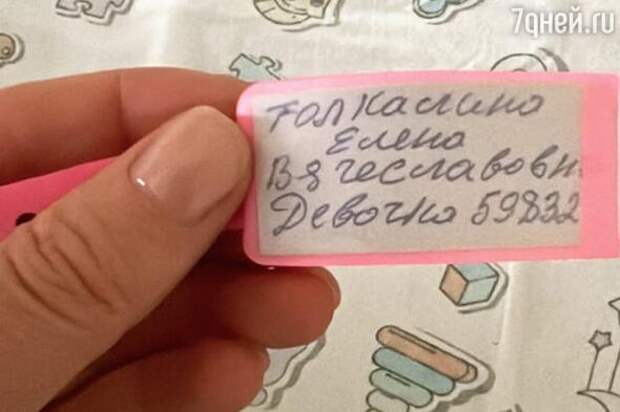 7дней.ru
Толкалина
Елена
Вячеславовн
Девочка 59832